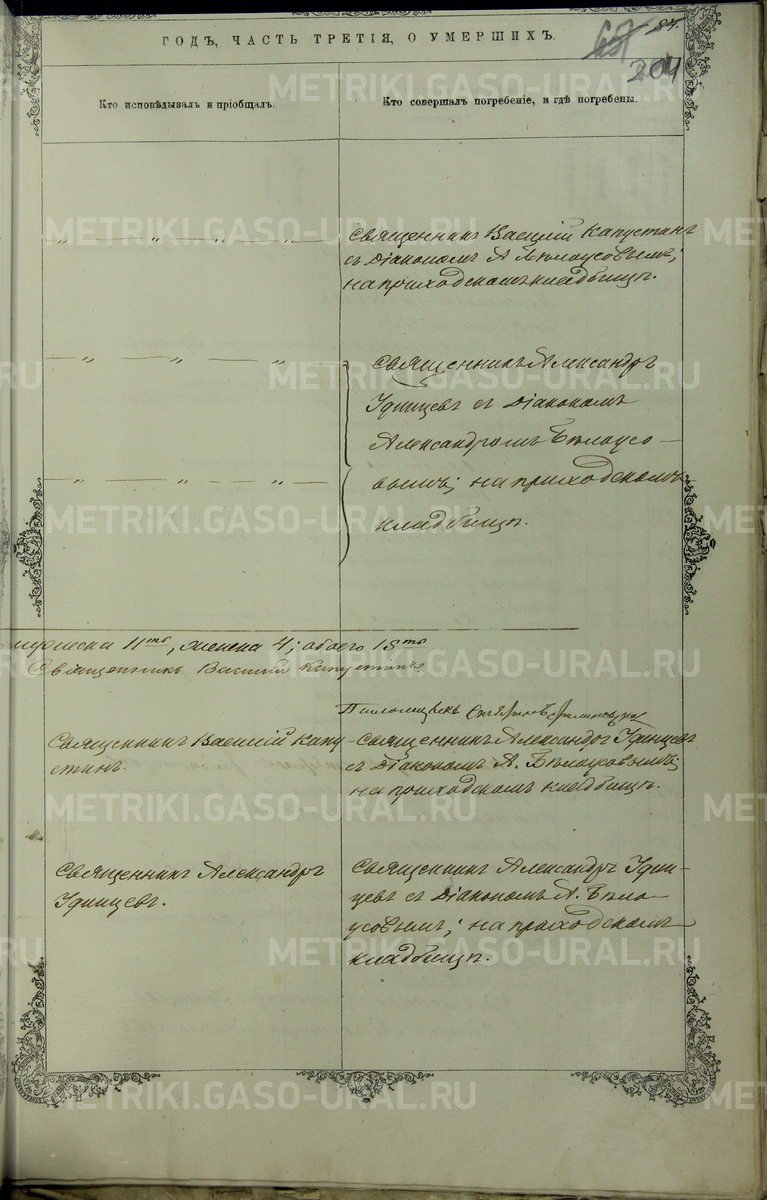 ГОДЪ, ЧАСТЬ ТРЕТІЯ, О УМЕРШИХЪ.
84.
204
Кто исповѣдывалъ и пріобщалъ.
Кто совершалъ погребеніе, и гдѣ погребены.
Священникъ Василій Капустинъ
съ Діакономъ А. Бѣлоусовымъ;
на приходскомъ кладбищѣ.
Священникъ Александръ
Удинцевъ съ Діакономъ
Александромъ Бѣлоусо-
вымъ; на приходскомъ
кладбищѣ.
мужеска 11ть, женска 4; обоего 15ть
Священникъ Василій Капустинъ
Псаломщикъ
Священникъ Василій Капу-
стинъ.
Священникъ Александръ Удинцевъ
съ Діакономъ А. Бѣлоусовымъ;
на приходскомъ кладбищѣ.
Священникъ Александръ
Удинцевъ.
Священникъ Александръ Удин-
цевъ съ Діакономъ А. Бѣло-
усовымъ; на приходскомъ
кладбищѣ.
METRIKI.GASO-URAL.RU